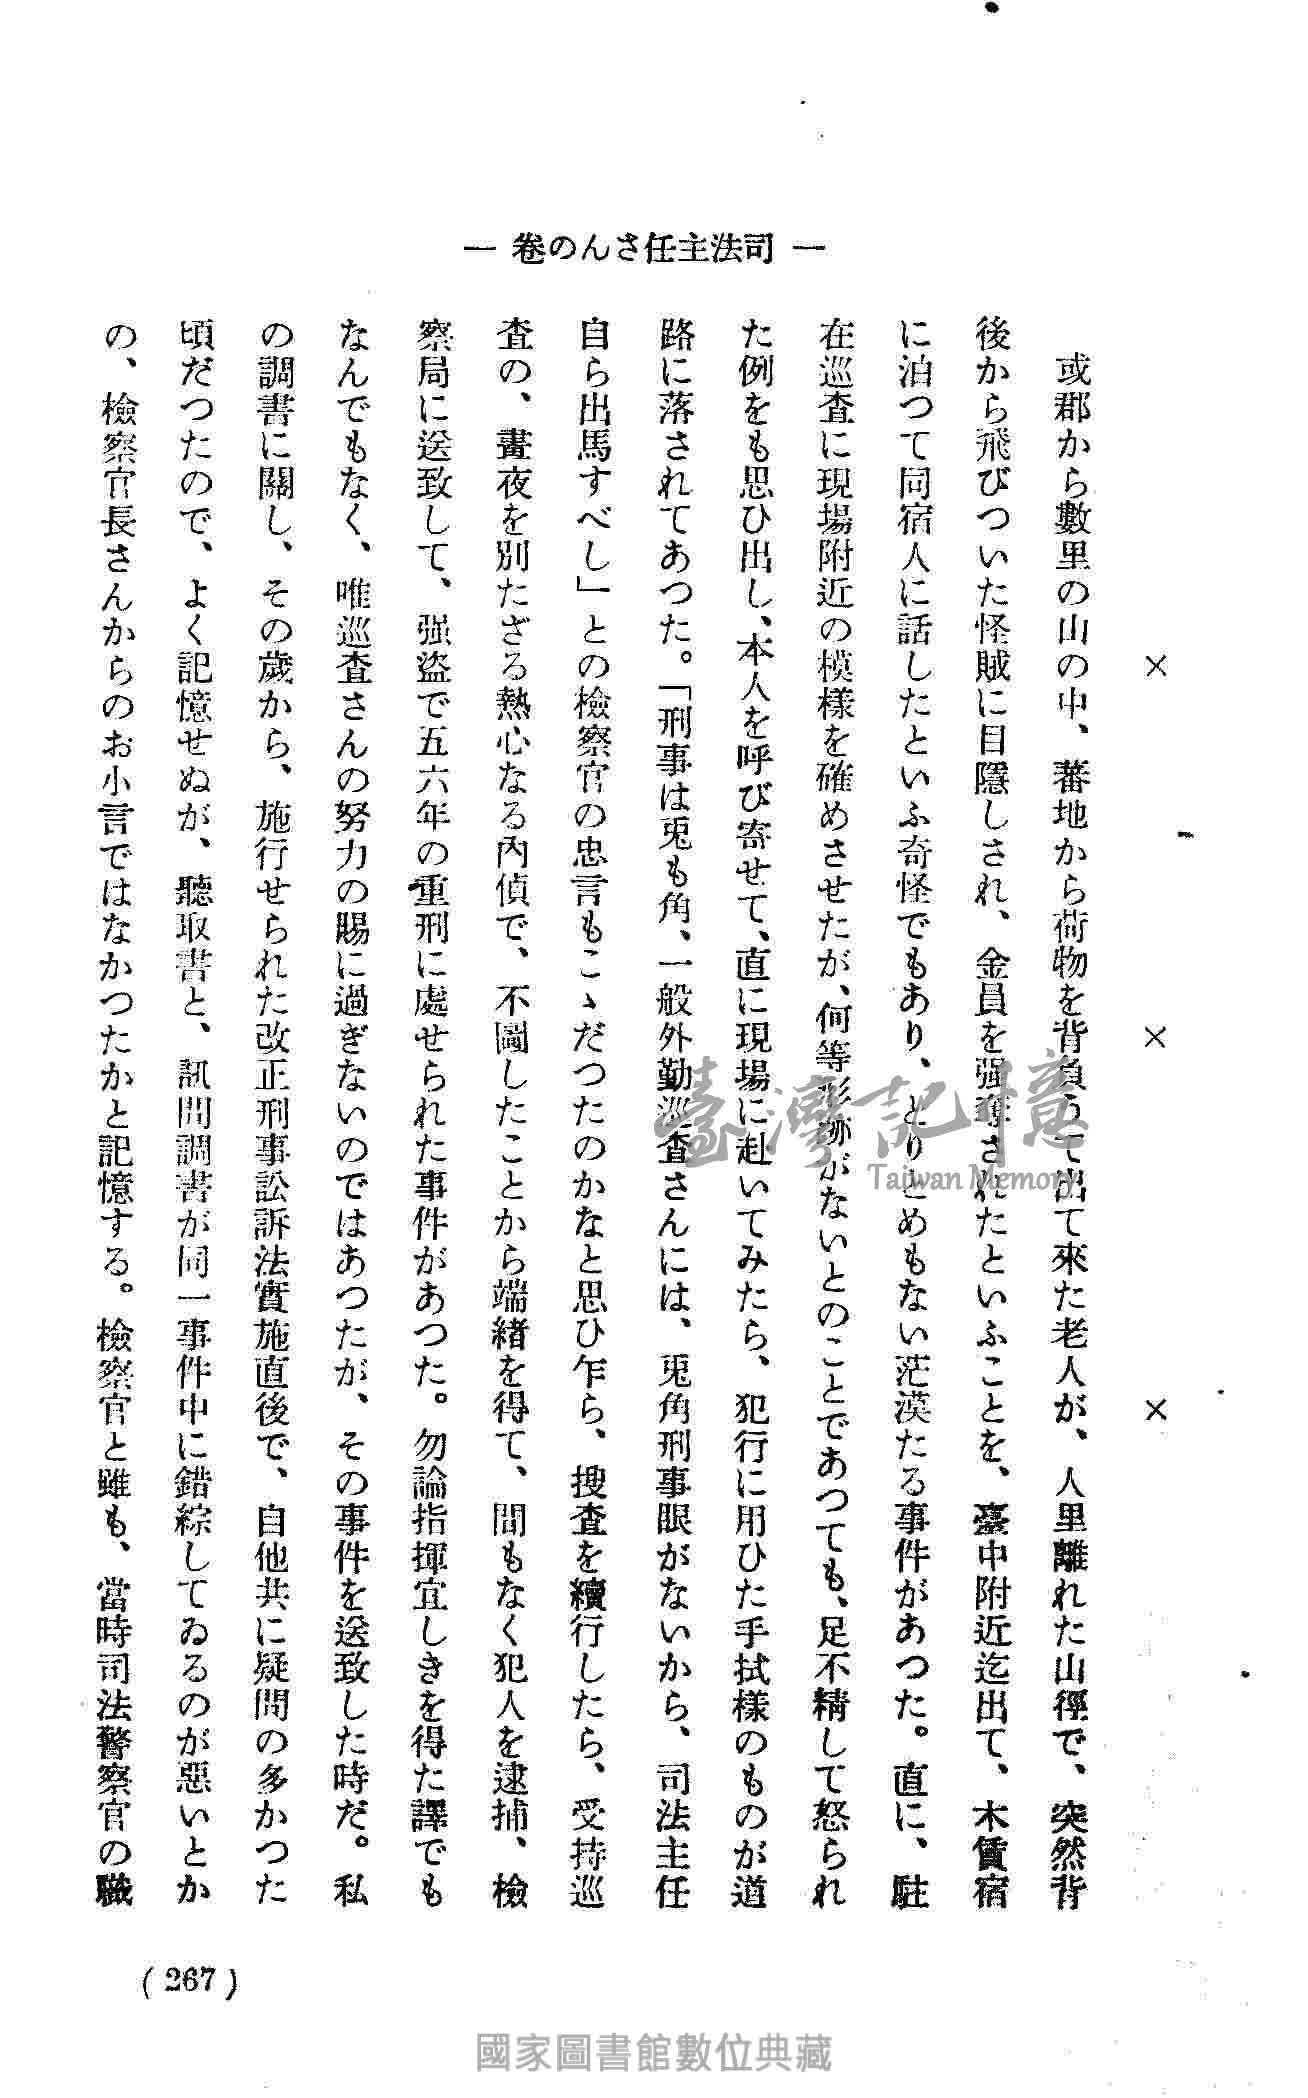 ― 卷のんさ任主法司 ―
× × ×
或郡から數里の山の中、蕃地から荷物を背負うて出て來た老人が、人里離れた山徑で、突然背
後から飛びついた怪賊に目隱しされ、金員を强奪されたといふことを、臺中附近迄出て、木賃宿
に泊つて同宿人に話したといふ奇怪でもあり、とりとめもない茫漠たる事件があつた。直に、駐
在巡査に現場附近の模樣を確めさせたが、何等形跡がないとのことであつても、足不精して怒られ
た例をも思ひ出し、本人を呼び寄せて、直に現場に赴いてみたら、犯行に用ひた手拭樣のものが道
路に落されてあつた。「刑事は兎も角、一般外勤巡査さんには、兎角刑事眼がないから、司法主任
自ら出馬すべし」との檢察官の忠言もこゝだつたのかなと思ひ乍ら、搜査を續行したら、受持巡
査の、晝夜を別たざる熱心なる內偵で、不圖したことから端緖を得て、間もなく犯人を逮捕、檢
察局に送致して、强盜で五六年の重刑に處せられた事件があつた。勿論指揮宜しきを得た譯でも
なんでもなく、唯巡査さんの努力の賜に過ぎないのではあつたが、その事件を送致した時だ。私
の調書に關し、その歲から、施行せられた改正刑事訟訴法實施直後で、自他共に疑問の多かつた
頃だつたので、よく記憶せぬが、聽取書と、訊問調書が同一事件中に錯綜してゐるのが惡いとか
の、檢察官長さんからのお小言ではなかつたかと記憶する。檢察官と雖も、當時司法警察官の職
(267)
臺灣記憶
Taiwan Memory
國家圖書館數位典藏